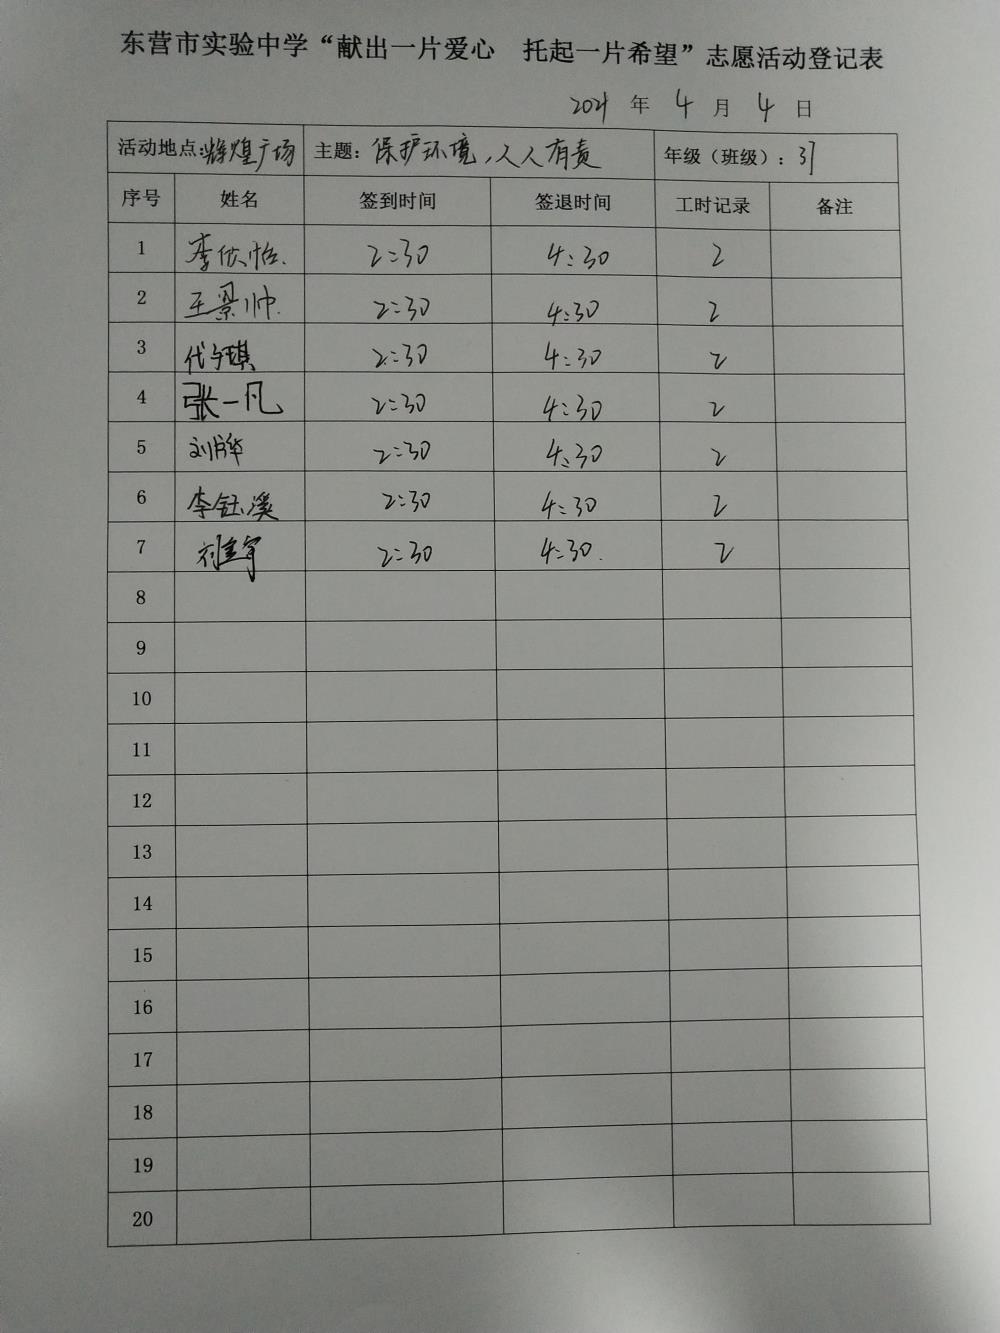 东营市实验中学“献出一片爱心 托起一片希望”志愿活动登记表
2021 年 4 月 4 日
活动地点:辉煌广场 主题:保护环境,人人有责 年级(班级):37
序号 姓名 签到时间 签退时间 工时记录 备注
1 李依怡. 2:30 4:30 2
2 王景帅. 2:30 4:30 2
3 代子琪 2:30 4:30 2
4 张一凡 2:30 4:30 2
5 刘 2:30 4:30 2
6 李钰溪 2:30 4:30 2
7 2:30 4:30. 2
8
9
10
11
12
13
14
15
16
17
18
19
20